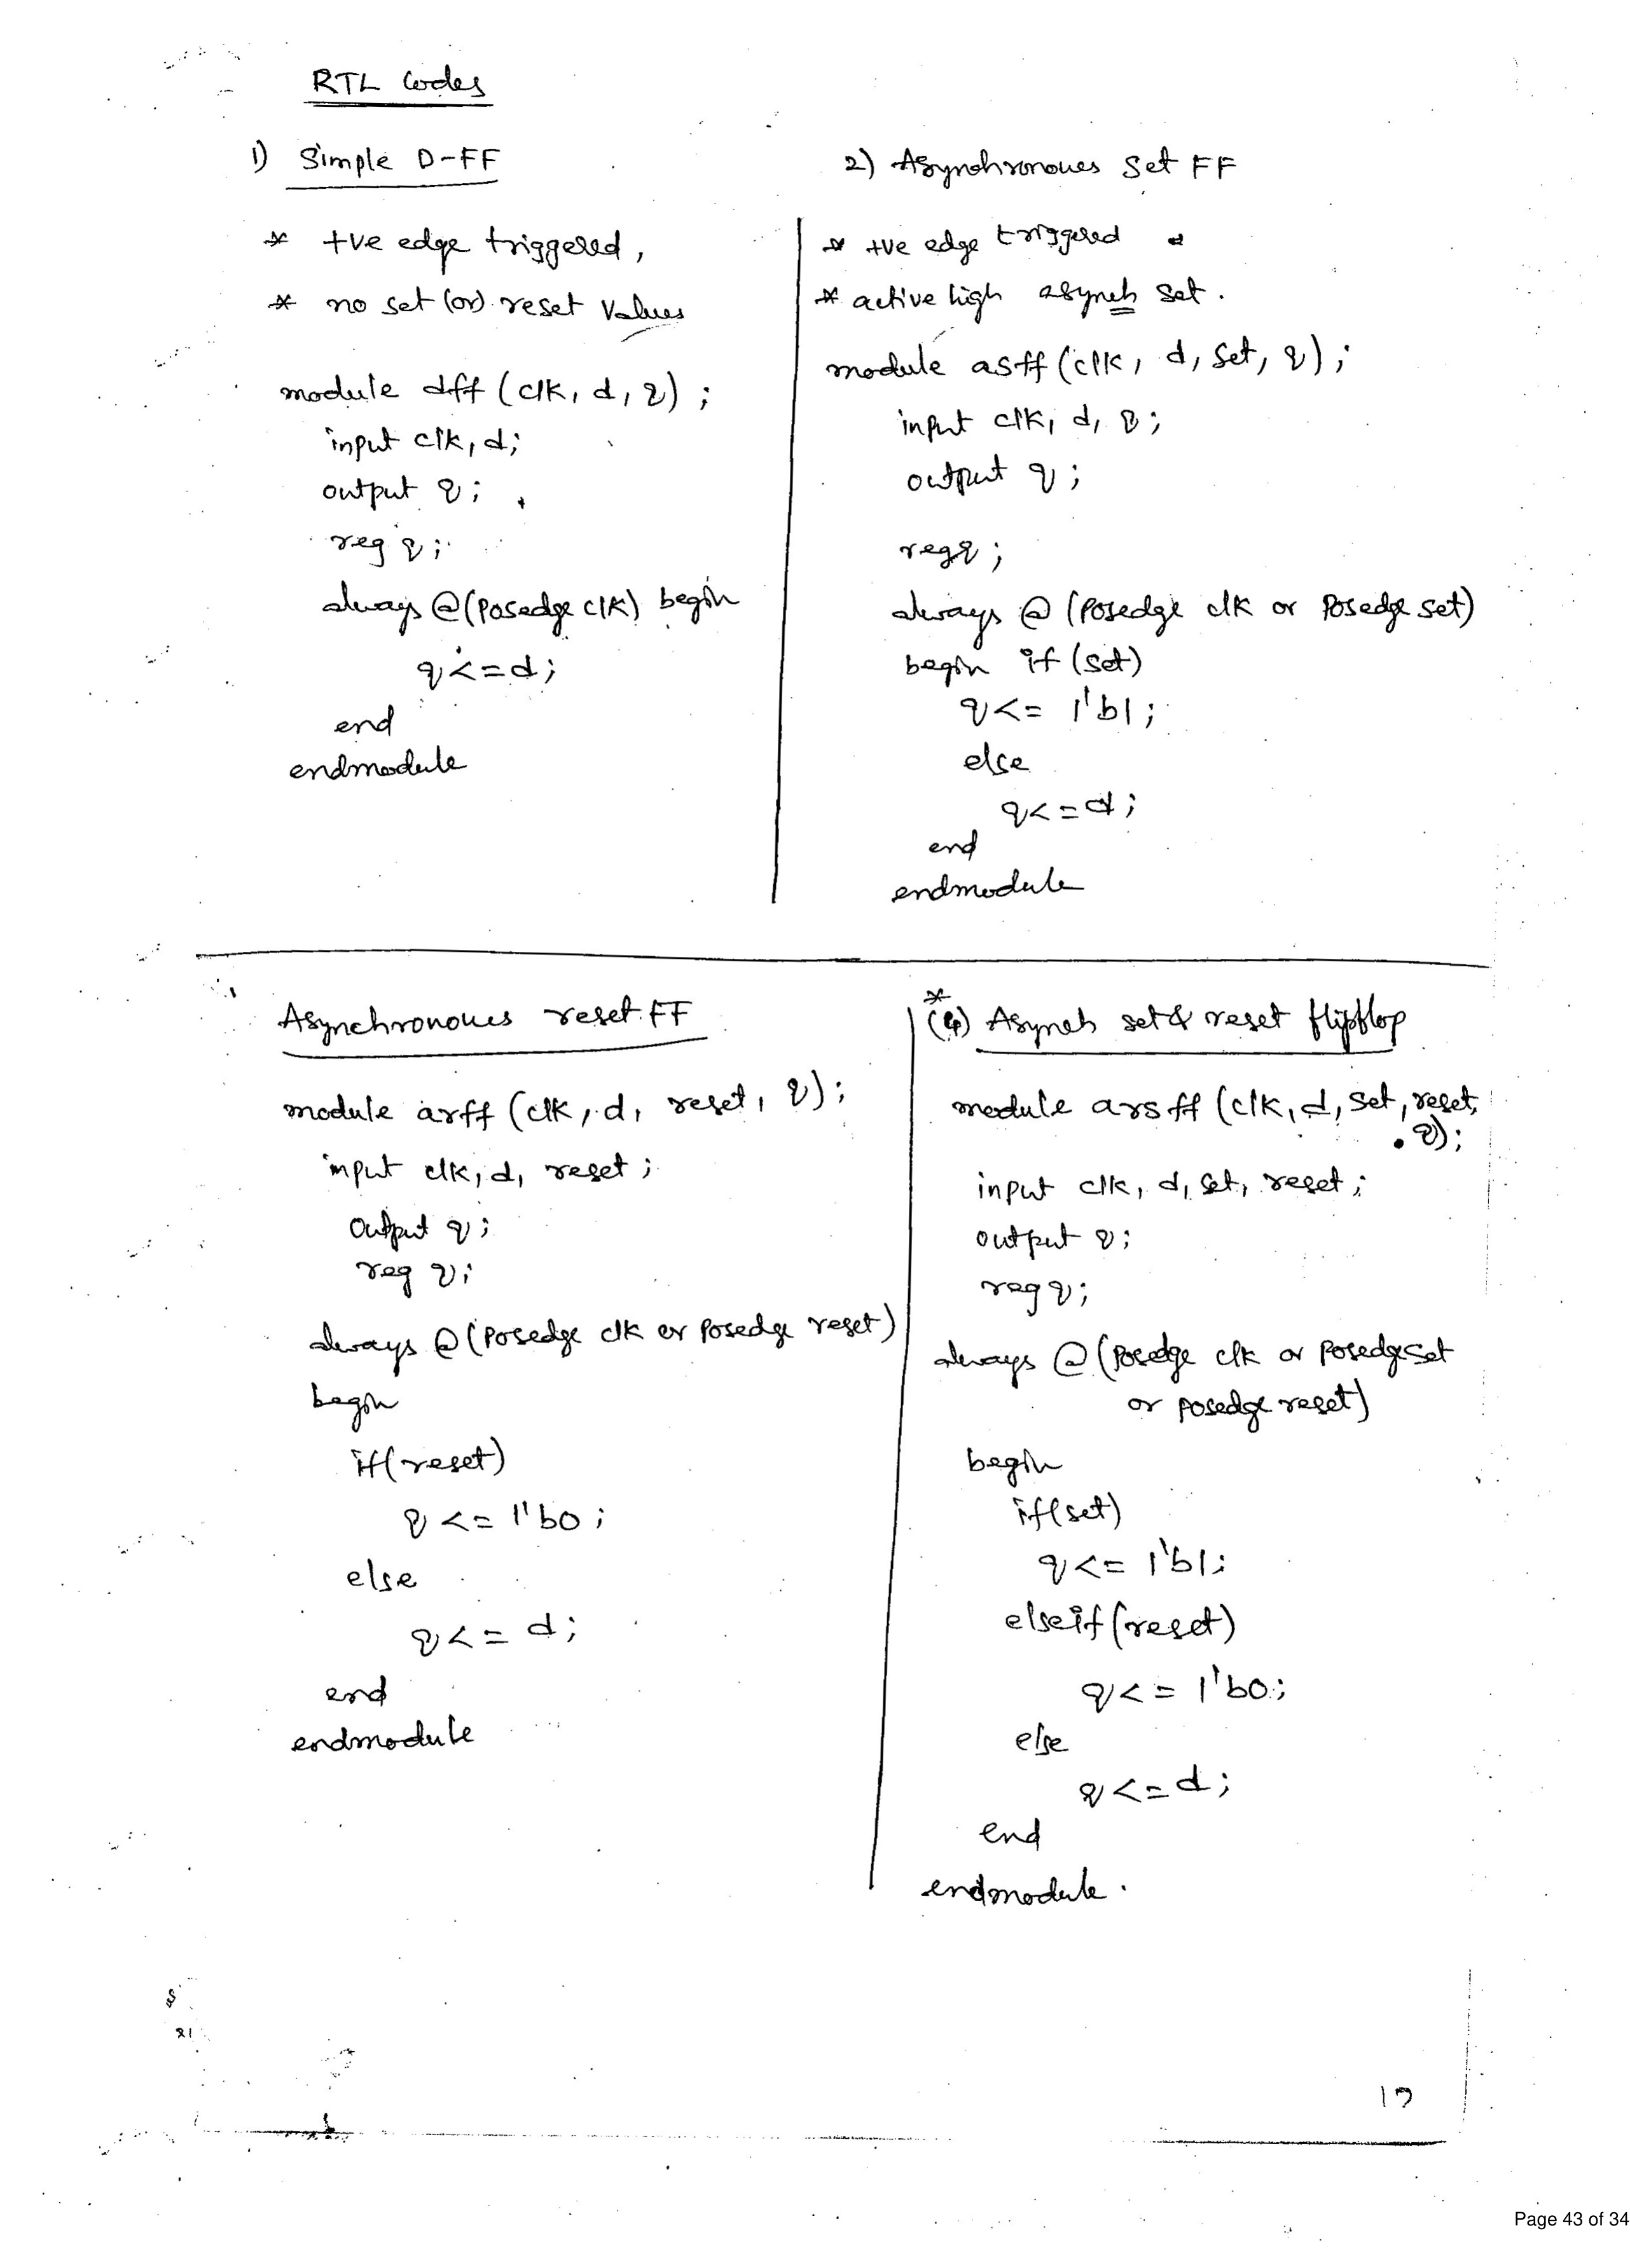 RTL Codes
1) Simple D-FF
* +ve edge triggered,
* no set (or) reset values
module dff (clk, d, q) ;
input clk, d;
output q ;
reg q ;
always @(posedge clk) begin
q <= d ;
end
endmodule
2) Asynchronoues Set FF
* +ve edge triggered
* active high asynch set.
module asff (clk, d, set, q) ;
input clk, d, q ;
output q ;
reg q ;
always @ (posedge clk or posedge set)
begin if (set)
q <= 1'b1 ;
else
q <= d ;
end
endmodule
Asynchronoues reset FF
module arff (clk, d, reset, q) ;
input clk, d, reset ;
output q ;
reg q ;
always @ (posedge clk or posedge reset)
begin
if (reset)
q <= 1'b0 ;
else
q <= d ;
end
endmodule
*
(4) Asynch set & reset flipflop
module arsff (clk, d, set, reset,
. q) ;
input clk, d, set, reset ;
output q ;
reg q ;
always @ (posedge clk or posedge set
or posedge reset)
begin
if (set)
q <= 1'b1 ;
elseif (reset)
q <= 1'b0 ;
else
q <= d ;
end
endmodule .
Page 43 of 34